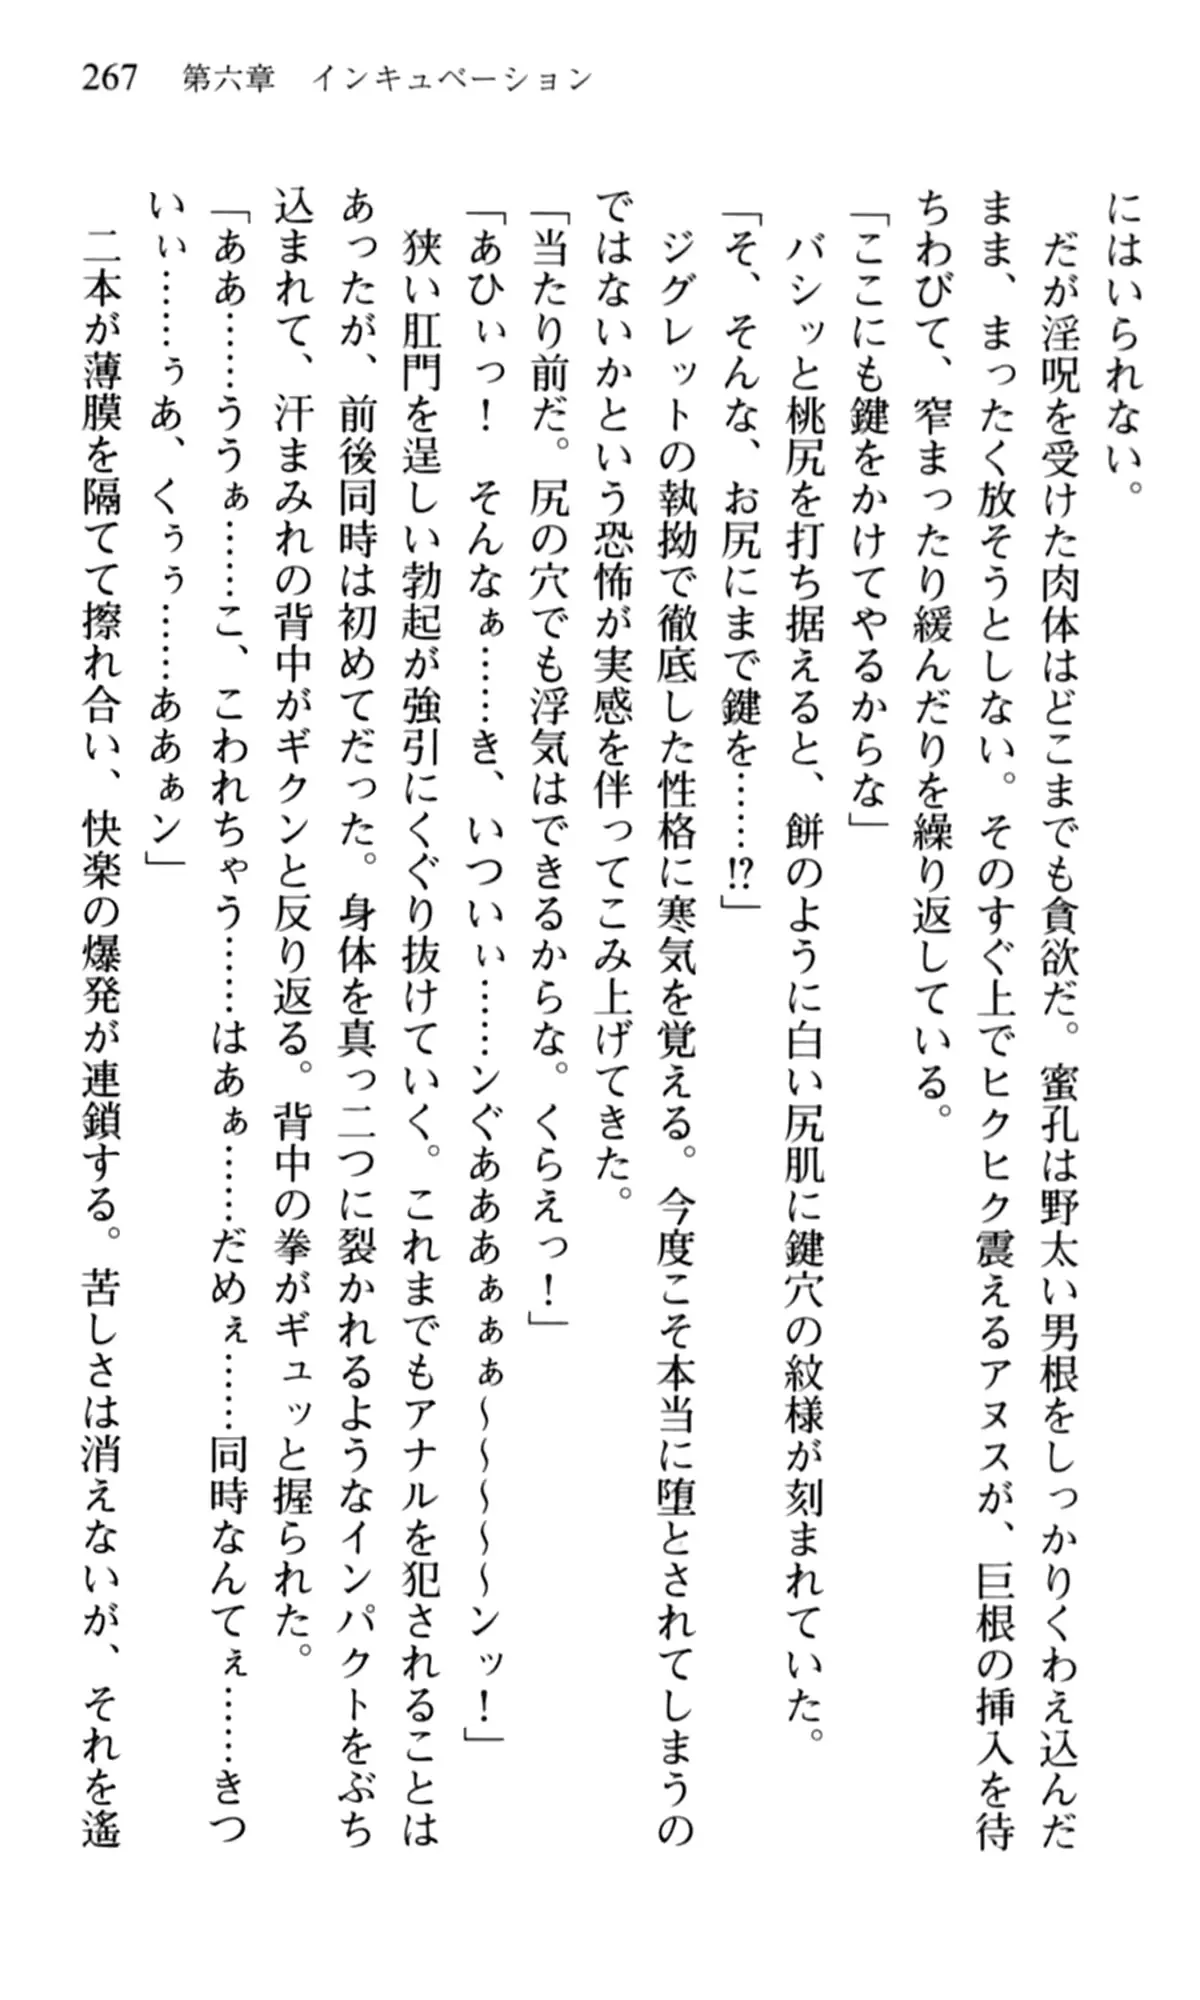 267　第六章　インキュベーション
にはいられない。
　だが淫呪を受けた肉体はどこまでも貪欲だ。蜜孔は野太い男根をしっかりくわえ込んだ
まま、まったく放そうとしない。そのすぐ上でヒクヒク震えるアヌスが、巨根の挿入を待
ちわびて、窄まったり緩んだりを繰り返している。
「ここにも鍵をかけてやるからな」
　バシッと桃尻を打ち据えると、餅のように白い尻肌に鍵穴の紋様が刻まれていた。
「そ、そんな、お尻にまで鍵を……!?」
　ジグレットの執拗で徹底した性格に寒気を覚える。今度こそ本当に堕とされてしまうの
ではないかという恐怖が実感を伴ってこみ上げてきた。
「当たり前だ。尻の穴でも浮気はできるからな。くらえっ！」
「あひぃっ！　そんなぁ……き、いついぃ……ンぐあああぁぁぁ～～～～～ンッ！」
　狭い肛門を逞しい勃起が強引にくぐり抜けていく。これまでもアナルを犯されることは
あったが、前後同時は初めてだった。身体を真っ二つに裂かれるようなインパクトをぶち
込まれて、汗まみれの背中がギクンと反り返る。背中の拳がギュッと握られた。
「ああ……ううぁ……こ、こわれちゃう……はあぁ……だめぇ……同時なんてぇ……きつ
いぃ……ぅあ、くぅぅ……ああぁン」
　二本が薄膜を隔てて擦れ合い、快楽の爆発が連鎖する。苦しさは消えないが、それを遙